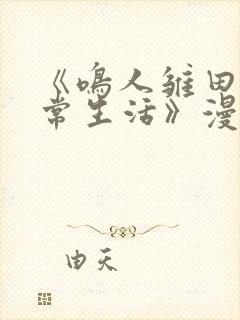 《鸣人雏田
常生活》漫
由天